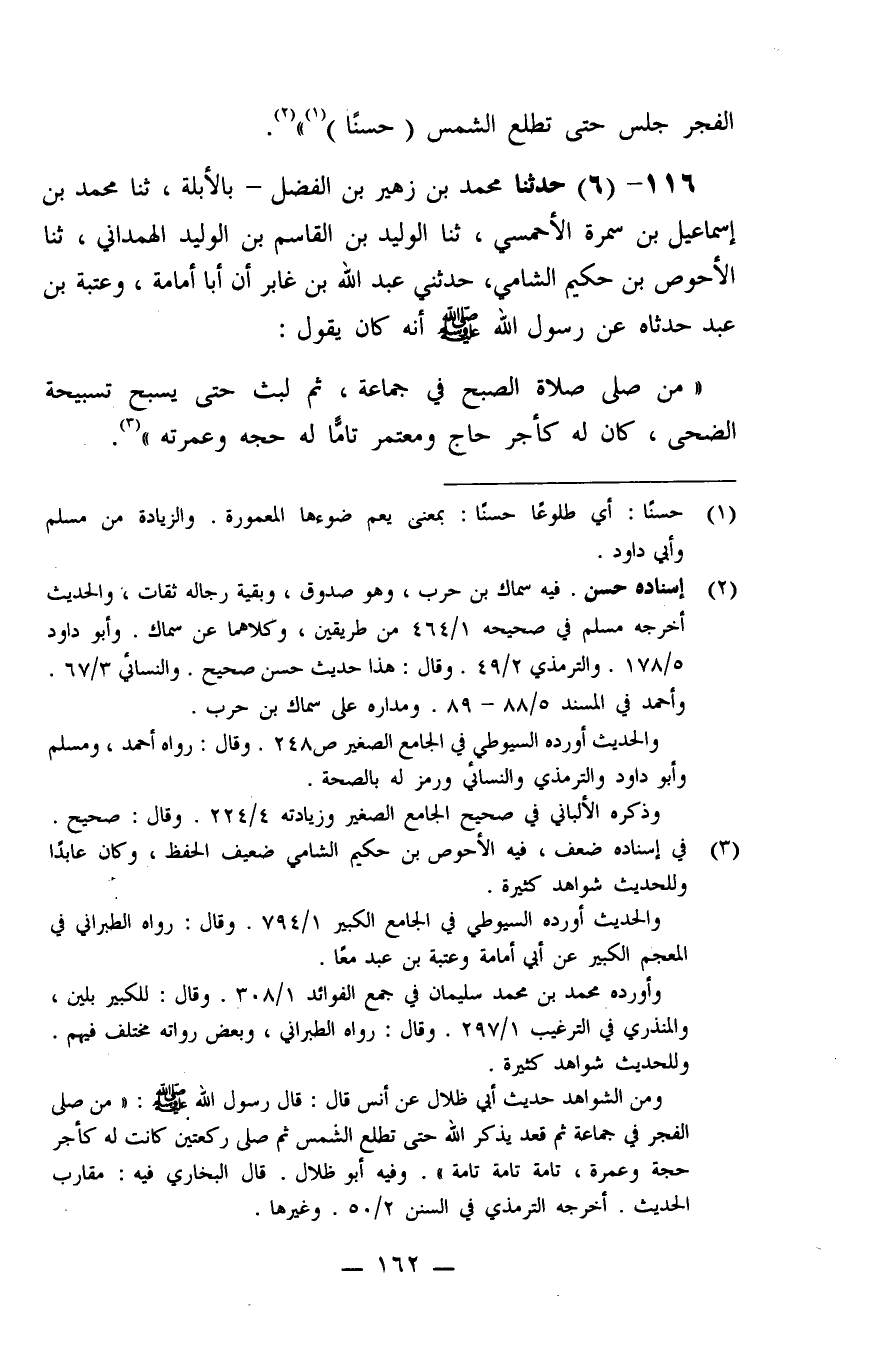 الفجر جلس حتى تطلع الشمس ( حسنًا )(١)»(٢).
١١٦- (٦) حدثنا محمد بن زهير بن الفضل – بالأبلة ، ثنا محمد بن
إسماعيل بن سمرة الأحمسي ، ثنا الوليد بن القاسم بن الوليد الهمداني ، ثنا
الأحوص بن حكيم الشامي، حدثني عبد الله بن غابر أن أبا أمامة ، وعتبة بن
عبد حدثاه عن رسول الله ﷺ أنه كان يقول :
« من صلى صلاة الصبح في جماعة ، ثم لبث حتى يسبح تسبيحة
الضحى ، كان له كأجر حاج ومعتمر تامًّا له حجه وعمرته »(٣).
(١) حسنًا : أي طلوعًا حسنًا : بمعنى يعم ضوءها المعمورة . والزيادة من مسلم
وأبي داود .
(٢) إسناده حسن . فيه سماك بن حرب ، وهو صدوق ، وبقية رجاله ثقات ، والحديث
أخرجه مسلم في صحيحه ٤٦٤/١ من طريقين ، وكلاهما عن سماك . وأبو داود
١٧٨/٥ . والترمذي ٤٩/٢ . وقال : هذا حديث حسن صحيح . والنسائي ٦٧/٣ .
وأحمد في المسند ٨٨/٥ – ٨٩ . ومداره على سماك بن حرب .
والحديث أورده السيوطي في الجامع الصغير ص٢٤٨ . وقال : رواه أحمد ، ومسلم
وأبو داود والترمذي والنسائي ورمز له بالصحة .
وذكره الألباني في صحيح الجامع الصغير وزيادته ٢٢٤/٤ . وقال : صحيح .
(٣) في إسناده ضعف ، فيه الأحوص بن حكيم الشامي ضعيف الحفظ ، وكان عابدًا
وللحديث شواهد كثيرة .
والحديث أورده السيوطي في الجامع الكبير ٧٩٤/١ . وقال : رواه الطبراني في
المعجم الكبير عن أبي أمامة وعتبة بن عبد معًا .
وأورده محمد بن محمد سليمان في جمع الفوائد ٣٠٨/١ . وقال : للكبير بلين ،
والمنذري في الترغيب ٢٩٧/١ . وقال : رواه الطبراني ، وبعض رواته مختلف فيهم .
وللحديث شواهد كثيرة .
ومن الشواهد حديث أبي ظلال عن أنس قال : قال رسول الله ﷺ : « من صلى
الفجر في جماعة ثم قعد يذكر الله حتى تطلع الشمس ثم صلى ركعتين كانت له كأجر
حجة وعمرة ، تامة تامة تامة » . وفيه أبو ظلال . قال البخاري فيه : مقارب
الحديث . أخرجه الترمذي في السنن ٥٠/٢ . وغيرها .
— ١٦٢ —